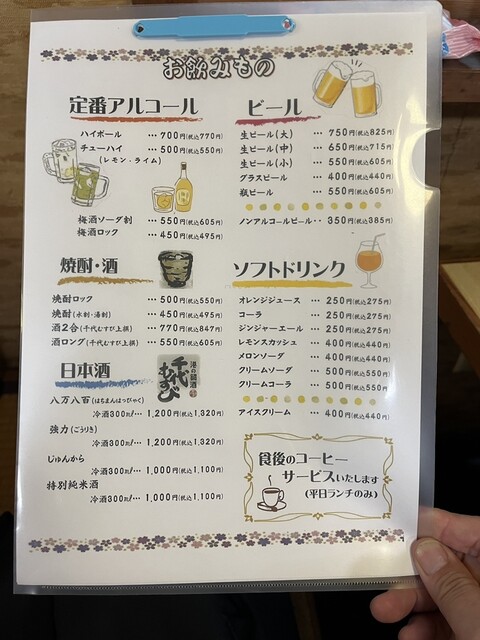 お飲みもの
定番アルコール
ハイボール … 700円(税込770円)
チューハイ … 500円(税込550円)
(レモン・ライム)
梅酒ソーダ割 … 550円(税込605円)
梅酒ロック … 450円(税込495円)
焼酎・酒
焼酎ロック … 500円(税込550円)
焼酎(水割・湯割) … 450円(税込495円)
酒2合(千代むすび上撰) … 770円(税込847円)
酒ロング(千代むすび上撰) … 550円(税込605円)
日本酒
千代むすび
八万八百(はちまんはっぴゃく)
冷酒300㎖… 1,200円(税込1,320円)
強力(ごうりき)
冷酒300㎖… 1,200円(税込1,320円)
じゅんから
冷酒300㎖… 1,000円(税込1,100円)
特別純米酒
冷酒300㎖… 1,000円(税込1,100円)
ビール
生ビール(大) … 750円(税込825円)
生ビール(中) … 650円(税込715円)
生ビール(小) … 550円(税込605円)
グラスビール … 400円(税込440円)
瓶ビール … 550円(税込605円)
ノンアルコールビール‥ 350円(税込385円)
ソフトドリンク
オレンジジュース … 250円(税込275円)
コーラ … 250円(税込275円)
ジンジャーエール … 250円(税込275円)
レモンスカッシュ … 400円(税込440円)
メロンソーダ … 400円(税込440円)
クリームソーダ … 500円(税込550円)
クリームコーラ … 500円(税込550円)
アイスクリーム … 400円(税込440円)
食後のコーヒー
サービスいたします
(平日ランチのみ)